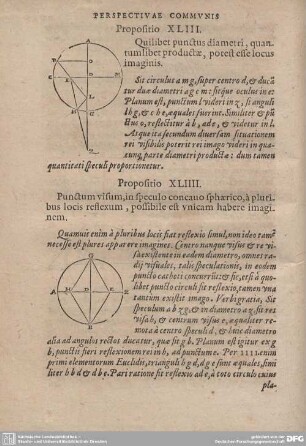 PERSPECTIVAE COMMVNIS
Propositio XLIII.
Quilibet punctus diametri, quan-
tumlibet productæ, potest esse locus
imaginis.
Sit circulus a m g, super centro d, & ducã
tur duæ diametri a g c m: sitque oculus in e:
Planum est, punctum l videri in z, si anguli
l b g, & e b e, æquales fuerint. Similiter & pũ
ctus o, reflectitur à b, ad e, & videtur in l.
Atque ita secundum diuersam situationem
rei visibilis poterit rei imago videri in qua-
cunq; parte diametri productæ: dum tamen
quantitati speculi proportionetur.
Propositio XLIIII.
Punctum visum, in speculo concauo sphærico, à pluri
bus locis reflexum, possibile est vnicam habere imagi-
nem.
Quamuis enim à pluribus locis fiat reflexio simul, non ideo tamẽ
necesse est plures apparere imagines. Centro nanque visus & re vi-
sa existente in eadem diametro, omnes ra-
dij visuales, talis speculationis, in eodem
puncto catheti concurrũt: & sic, est ò quo
libet puncto circuli sit reflexio, tamen vna
tantum existit imago. Verbi gratia, Sit
speculum a b z g, & in diametro a z, sit res
visa h, & centrum visus e, æqualiter re-
mota à centro speculi d, & huic diametro
alia ad angulos rectos ducatur, quæ sit g b. Planum est igitur ex g
b, punctis fieri reflexionem rei h, ad punctum e. Per IIII. enim
primi elementorum Euclidis, trianguli h g d, d g e sunt æquales, simi
liter h b d & d b e. Pari ratione sit reflexio ad e, à toto circulo cuius
pla-
A
B
D
E
G
H
Z
DFG